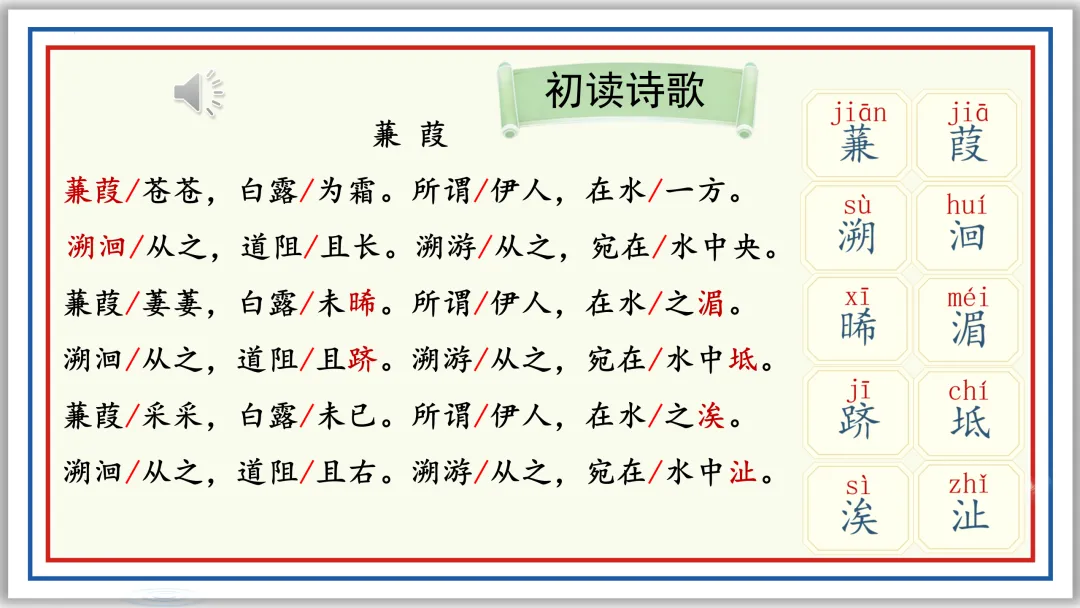 初读诗歌
蒹 葭
蒹葭/苍苍，白露/为霜。所谓/伊人，在水/一方。
溯洄/从之，道阻/且长。溯游/从之，宛在/水中央。
蒹葭/萋萋，白露/未晞。所谓/伊人，在水/之湄。
溯洄/从之，道阻/且跻。溯游/从之，宛在/水中坻。
蒹葭/采采，白露/未已。所谓/伊人，在水/之涘。
溯洄/从之，道阻/且右。溯游/从之，宛在/水中沚。
jiān jiā
蒹 葭
sù huí
溯 洄
xī méi
晞 湄
jī chí
跻 坻
sì zhǐ
涘 沚